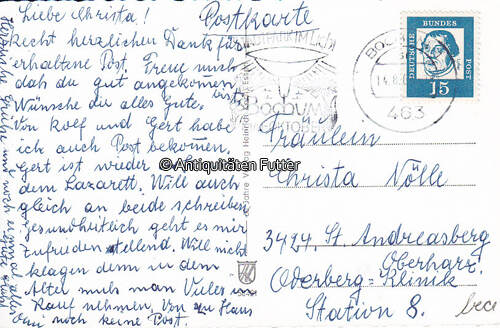 Liebe Christa!
Recht herzlichen Dank für
erhaltene Post. Freue mich
daß du gut angekommen
bist.
Wünsche dir alles Gute.
Von Rolf und Gert habe
ich auch Post bekommen.
Gert ist wieder
dem Lazarett. Will auch
gleich an beide schreiben
Gesundheitlich geht es mir
zufrieden stellend. Will nicht
klagen denn in dem
Alter muß man Vieles in
Kauf nehmen. Von zu Haus
noch keine Post.
Herzliche Grüße und noch einmal alles
Postkarte
BOCHUM
463
DEUTSCHE BUNDESPOST
15
© Antiquitäten Futter
Fräulein
Christa Nölle
3424 St. Andreasberg
Oberharz
Oderberg-Klinik
Station 8.